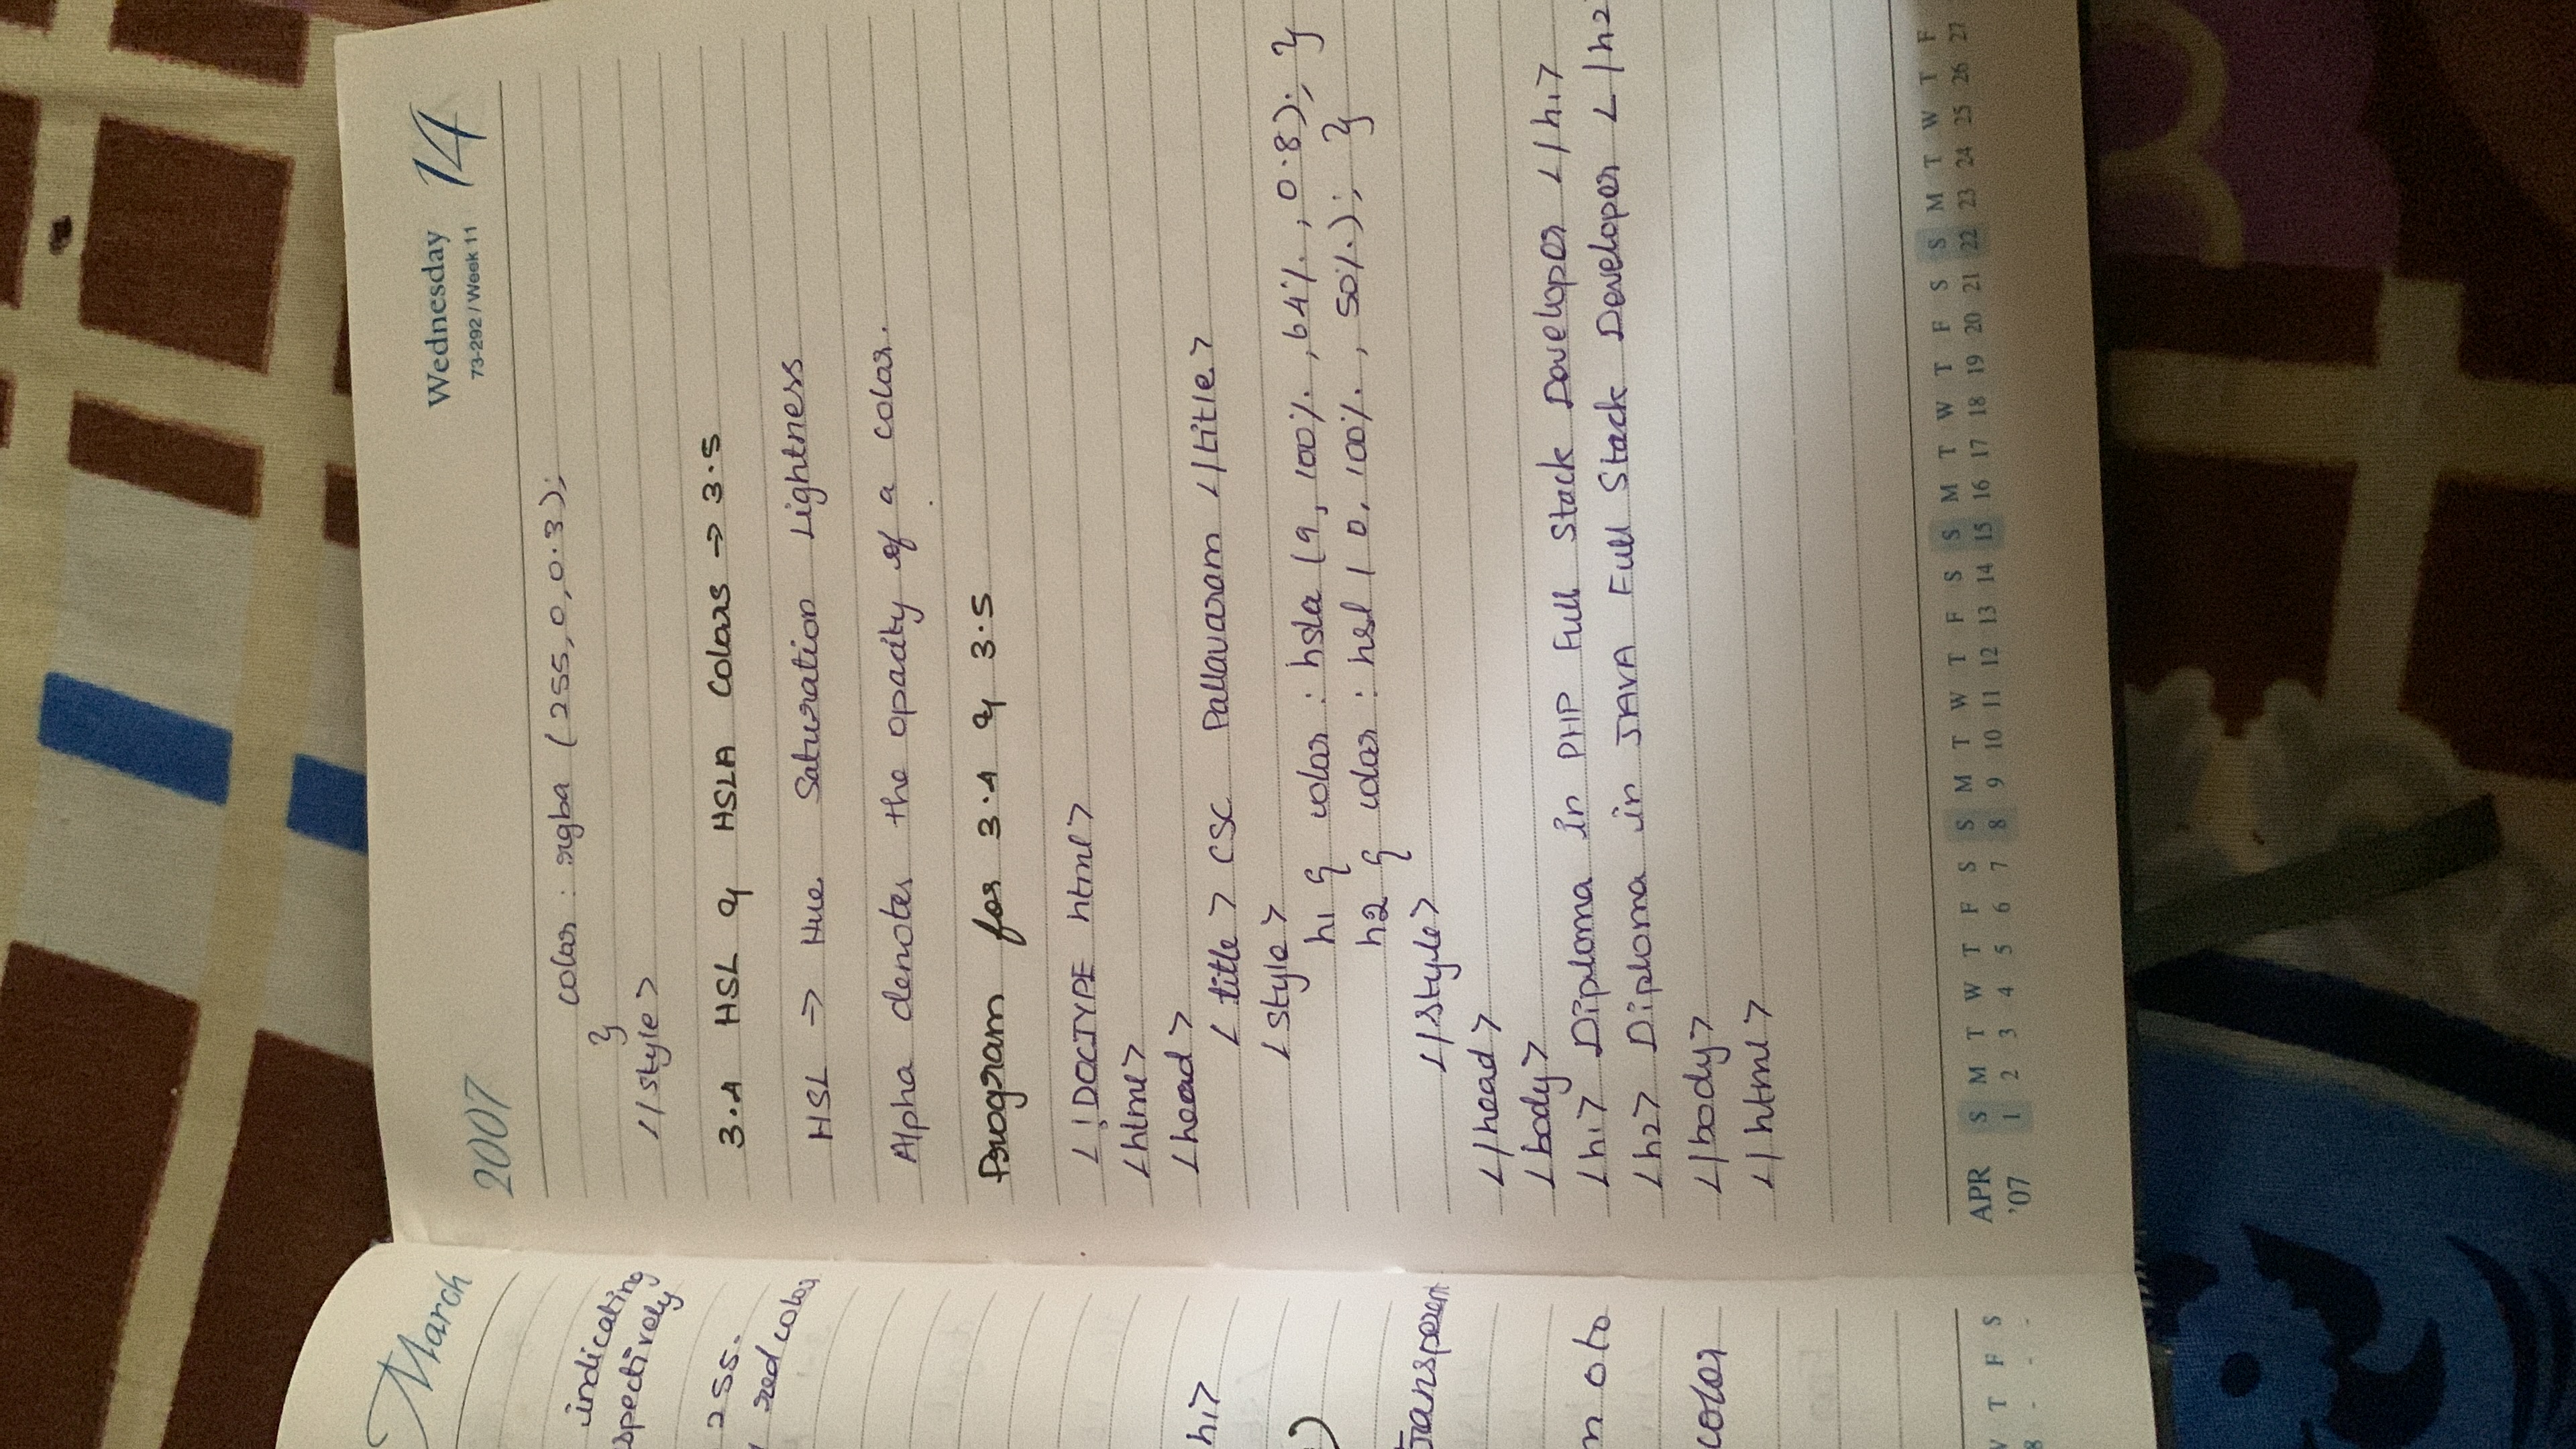 March
indicating
spectively
255.
red color
h1>
)
transperent
n 0 to
color
T F S
8 - - -
2007
Wednesday 14
73-292 / Week 11
color : rgba (255,0,0.3);
}
</style>
3.4 HSL & HSLA Colors → 3.5
HSL → Hue Saturation Lightness
Alpha denotes the opacity of a color.
Program for 3.4 & 3.5
<!DOCTYPE html>
<html>
<head>
<title> CSC Pallavaram </title>
<style>
h1 { color : hsla (9, 100%, 64%, 0.8); }
h2 { color : hsl ( 0, 100%, 50%); }
</style>
</head>
<body>
<h1> Diploma in PHP Full Stack Developer </h1>
<h2> Diploma in JAVA Full Stack Developer </h2
</body>
</html>
APR S M T W T F S S M T W T F S S M T W T F S S M T W T F
'07 1 2 3 4 5 6 7 8 9 10 11 12 13 14 15 16 17 18 19 20 21 22 23 24 25 26 27